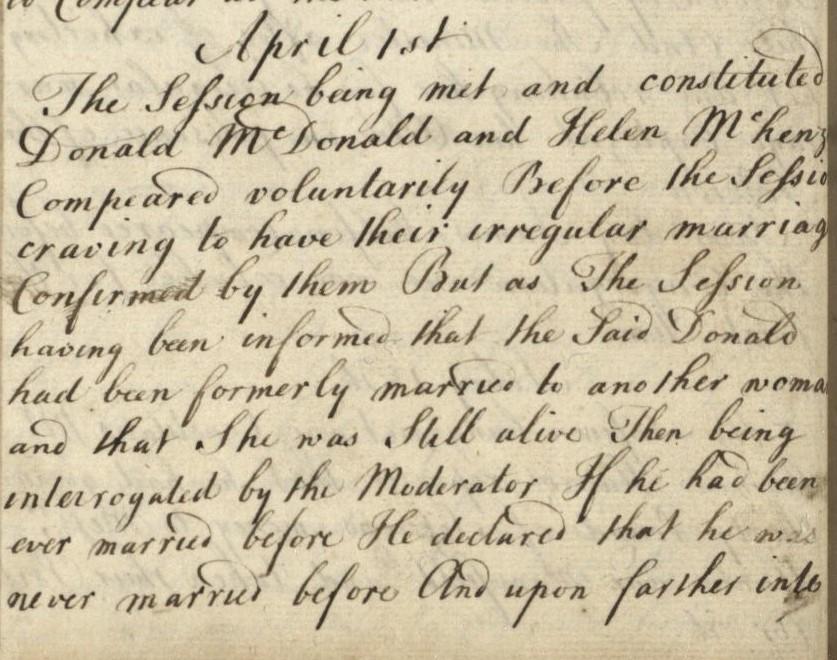 to Compear
April 1st
The Session being met and constituted
Donald McDonald and Helen Mckenz
Compeared voluntarily Before the Sessio
craving to have their irregular marriag
Confirmed by them But as The Session
having been informed that the Said Donald
had been formerly married to another woma
and that She was Still alive Then being
interrogated by the Moderator If he had been
ever married before He declared that he was
never married before And upon farther inte